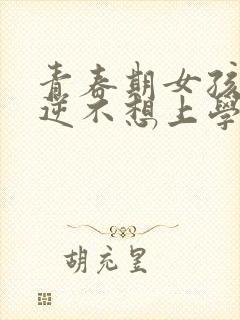 青春期女孩
逆不想上學
胡充呈